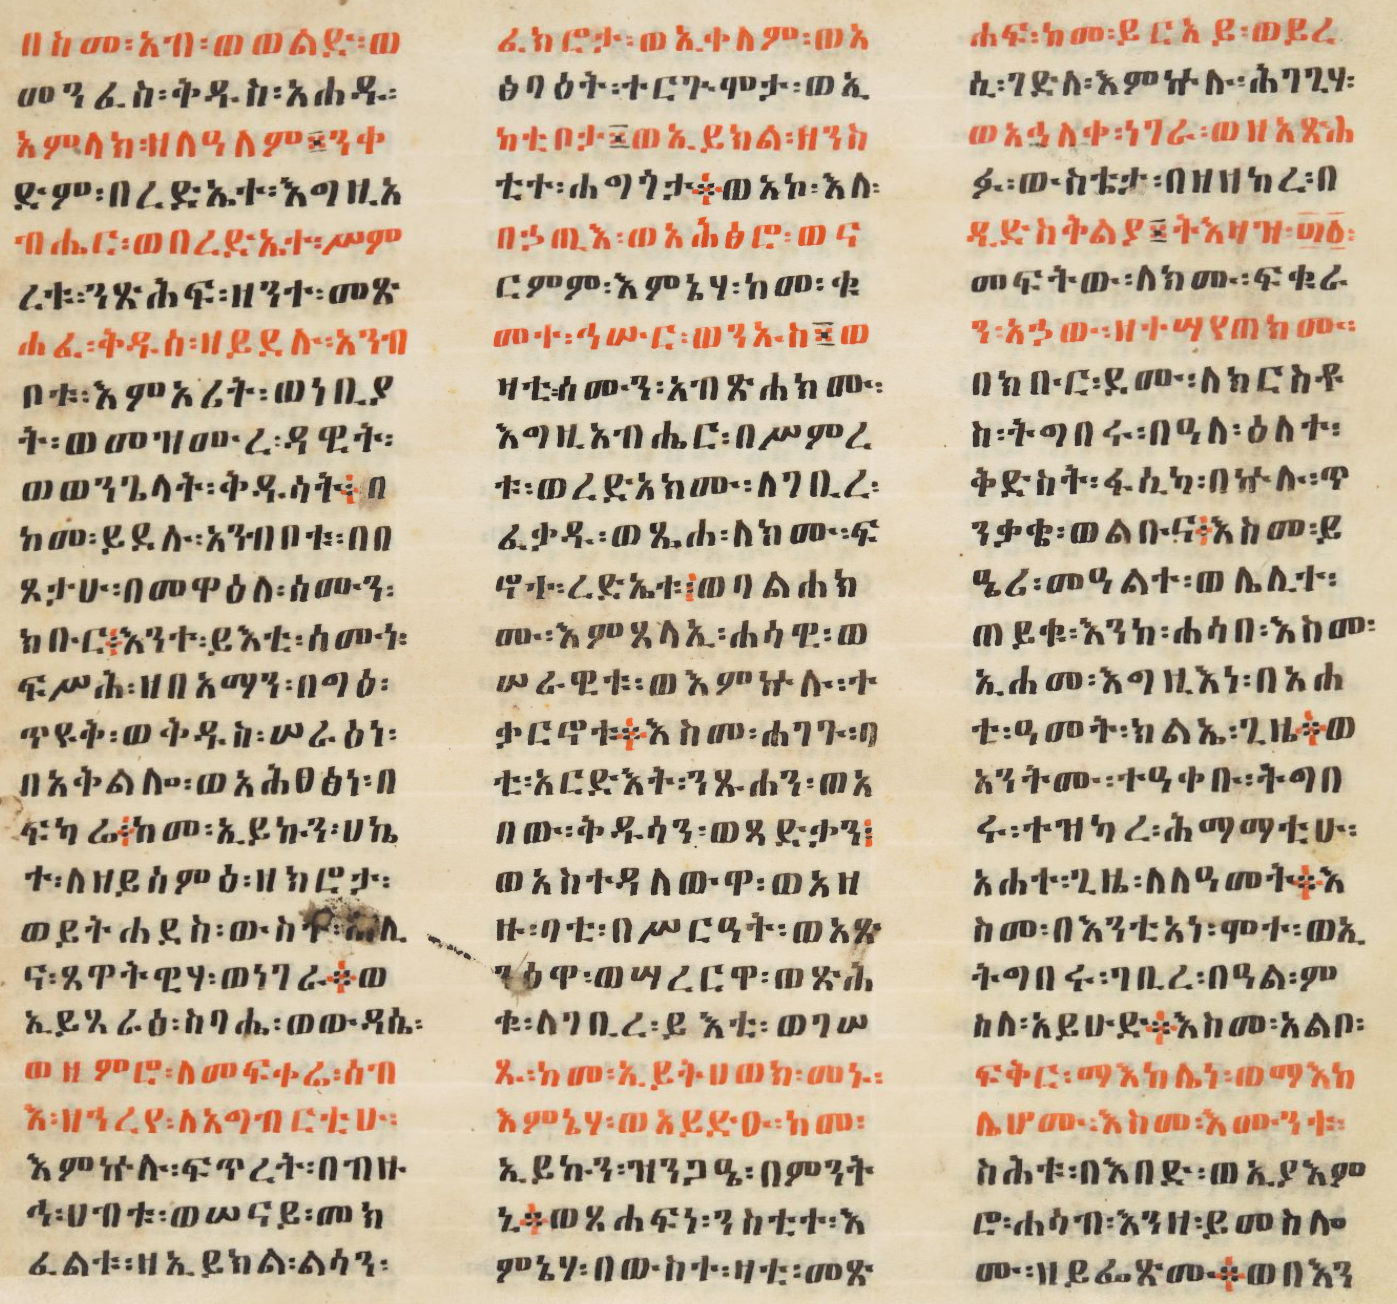 በስመ፡አብ፡ወወልድ፡ወ
መንፈስ፡ቅዱስ፡አሐዱ፡
አምላክ፡ዘለዓለም፤ንቀ
ድም፡በረድኤተ፡እግዚአ
ብሔር፡ወበረድኤተ፡ሥም
ረቱ፡ንጽሕፍ፡ዘንተ፡መጽ
ሐፈ፡ቅዱሰ፡ዘይደሉ፡አንብ
ቦቱ፡እምአሪት፡ወነቢያ
ት፡ወመዝሙረ፡ዳዊት፡
ወወንጌላት፡ቅዱሳት፤በ
ከመ፡ይደሉ፡አንብቦቱ፡በበ
ጾታሁ፡በመዋዕለ፡ሰሙን፡
ክቡር፤እንተ፡ይእቲ፡ሰሙነ፡
ፍሥሕ፡ዘበአማን፡በግዕ፡
ጥዩቅ፡ወቅዱስ፡ሠራዕነ፡
በአቅልሎ፡ወአሕፀፅነ፡በ
ፍካሬ፤ከመ፡ኢይኩን፡ሀኬ
ተ፡ለዘይሰምዕ፡ዘክሮታ፡
ወይትሐደስ፡ውስተ፡ሕሊ
ና፡ጸዋትዊሃ፡ወነገራ፤ወ
ኢይጻራዕ፡ስባሔ፡ወውዳሴ፡
ወዘምሮ፡ለመፍቀሬ፡ሰብ
እ፡ዘኀረየ፡ለአግብርቲሁ፡
እምኵሉ፡ፍጥረት፡በብዙ
ኅ፡ሀብቱ፡ወሠናይ፡መክ
ፈልቱ፡ዘኢይክል፡ልሳን፡
ፈክሮታ፡ወኢቀለም፡ወአ
ፅባዕት፡ተርጕሞታ፡ወኢ
ከቲቦታ፤ወኢይክል፡ዘንስ
ቲተ፡ሐግጎታ፤ወአኮ፡እለ፡
በኃጢእ፡ወአሕፅሮ፡ወና
ርምም፡እምኔሃ፡ከመ፡ቁ
መተ፡ኅሡር፡ወንኡስ፤ወ
ዛቲ፡ሰሙን፡አብጽሐክሙ፡
እግዚአብሔር፡በሥምረ
ቱ፡ወረድአክሙ፡ለገቢረ፡
ፈቃዱ፡ወጼሐ፡ለክሙ፡ፍ
ኖተ፡ረድኤቱ፤ወባልሐክ
ሙ፡እምጸላኢ፡ሐሳዊ፡ወ
ሠራዊቱ፡ወእምኵሉ፡ተ
ቃርኖቱ፤እስመ፡ሐገጉ፡ባ
ቲ፡አርድእት፡ንጹሐን፡ወአ
በው፡ቅዱሳን፡ወጻድቃን፤
ወአስተዳለውዋ፡ወአዘ
ዙ፡ባቲ፡በሥርዓት፡ወአጽ
ንዕዋ፡ወሣረርዋ፡ወጽሕ
ቁ፡ለገቢረ፡ይእቲ፡ወገሠ
ጹ፡ከመ፡ኢይትሀወክ፡መኑ፡
እምኔሃ፡ወአይድዑ፡ከመ፡
ኢይኩን፡ዝንጋዔ፡በምንት
ኒ፤ወጸሐፍነ፡ንስቲተ፡እ
ምኔሃ፡በውስተ፡ዛቲ፡መጽ
ሐፍ፡ከመ፡ይርአይ፡ወይረ
ሲ፡ገድለ፡እምኵሉ፡ሕገጊሃ፡
ወአኃለቀ፡ነገራ፡ወዘአጽሐ
ፉ፡ውስቴታ፡በዘዘከረ፡በ
ዲድስቅልያ፤ትእዛዝ፡፴፩፡
መፍትው፡ለክሙ፡ፍቁራ
ን፡አኃው፡ዘተሣየጠክሙ፡
በክቡር፡ደሙ፡ለክርስቶ
ስ፡ትግበሩ፡በዓለ፡ዕለተ፡
ቅድስት፡ፋሲካ፡በኵሉ፡ጥ
ንቃቄ፡ወልቡና፤እስመ፡ይ
ዔሪ፡መዓልተ፡ወሌሊተ፡
ጠይቁ፡እንከ፡ሐሳበ፡እስመ፡
ኢሐመ፡እግዚእነ፡በአሐ
ቲ፡ዓመት፡ክልኤ፡ጊዜ፤ወ
አንትሙ፡ተዓቀቡ፡ትግበ
ሩ፡ተዝካረ፡ሕማማቲሁ፡
አሐተ፡ጊዜ፡ለለዓመት፤እ
ስመ፡በእንቲአነ፡ሞተ፡ወኢ
ትግበሩ፡ገቢረ፡በዓል፡ም
ስለ፡አይሁድ፤እስመ፡አልቦ፡
ፍቅር፡ማእከሌነ፡ወማእከ
ሌሆሙ፡እስመ፡እሙንቱ፡
ስሕቱ፡በእበድ፡ወኢያእም
ሮ፡ሐሳብ፡እንዘ፡ይመስሎ
ሙ፡ዘይፌጽሙ፤ወበእን